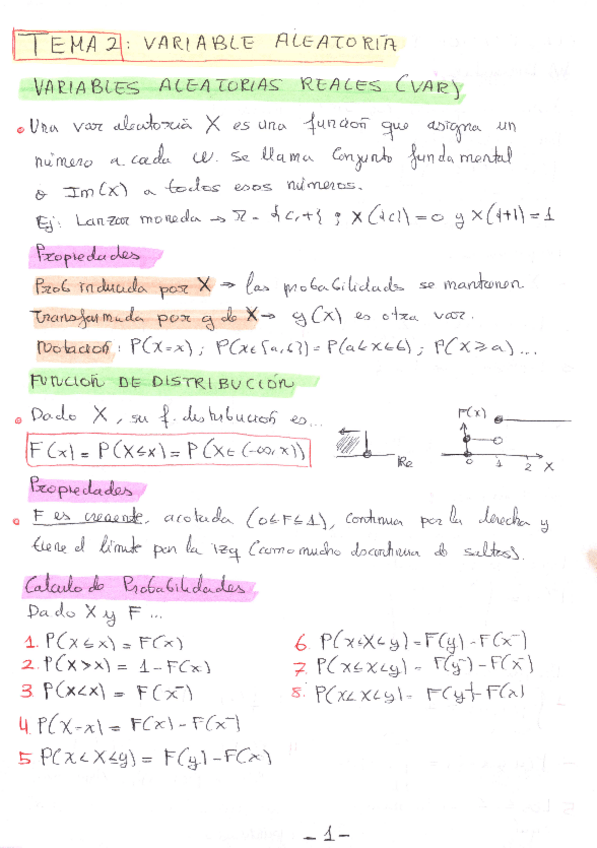 TEMA 2: VARIABLE ALEATORIA
VARIABLES ALEATORIAS REALES (VAR)
Una var aleatoria X es una función que asigna un
número a cada w. Se llama Conjunto fundamental
o Im(X) a todos esos números.
Ej: Lanzar moneda → Ω = {c,+} ; X({c}) = 0 y X({+}) = 1
Propiedades
Prob inducida por X → las probabilidads se mantienen
Transformada por g de X → g(X) es otra var.
Notación: P(X=x) ; P(X∈[a,b]) = P(a≤X≤b) ; P(X≥a)...
FUNCION DE DISTRIBUCIÓN
Dado X, su f. distribución es...
F(x) = P(X≤x) = P(X∈(-∞,x))
Re
F(x)
0 1 2 X
Propiedades
F es creciente, acotada (0≤F≤1), continua por la derecha y
tiene el limite por la izq (como mucho discontinua de saltos).
Calculo de Probabilidades
Dado X y F...
1. P(X≤x) = F(x)
2. P(X>x) = 1-F(x)
3. P(X<x) = F(x⁻)
4. P(X=x) = F(x) - F(x⁻)
5 P(x<X≤y) = F(y) - F(x)
6. P(x≤X≤y) = F(y) - F(x⁻)
7. P(x≤X<y) = F(y⁻) - F(x⁻)
8. P(x<X<y) = F(y⁻) - F(x)
- 1 -